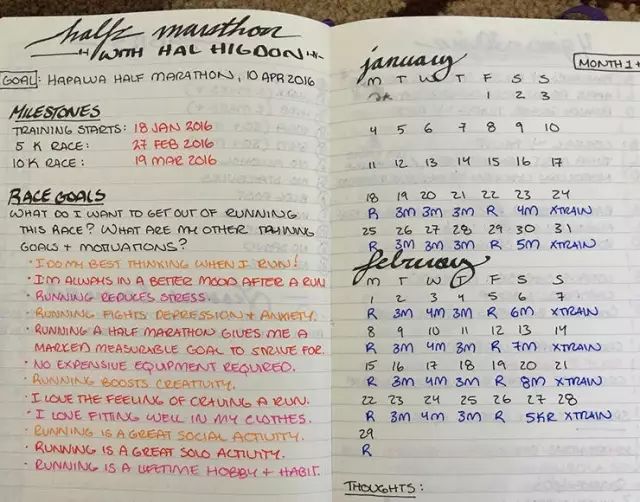 half marathon
WITH HAL HIGDON
GOAL: HAPALUA HALF MARATHON, 10 APR 2016
MILESTONES
TRAINING STARTS: 18 JAN 2016
5 K RACE: 27 FEB 2016
10K RACE: 19 MAR 2016
RACE GOALS
WHAT DO I WANT TO GET OUT OF RUNNING
THIS RACE? WHAT ARE MY OTHER TRAINING
GOALS + MOTIVATIONS?
• I DO MY BEST THINKING WHEN I RUN!
• I'M ALWAYS IN A BETTER MOOD AFTER A RUN
• RUNNING REDUCES STRESS.
• RUNNING FIGHTS DEPRESSION + ANXIETY.
• RUNNING A HALF MARATHON GIVES ME A
MARKED MEASURABLE GOAL TO STRIVE FOR.
• NO EXPENSIVE EQUIPMENT REQUIRED.
• RUNNING BOOSTS CREATIVITY.
• I LOVE THE FEELING OF CRAVING A RUN.
• I LOVE FITING WELL IN MY CLOTHES.
• RUNNING IS A GREAT SOCIAL ACTIVITY.
• RUNNING IS A GREAT SOLO ACTIVITY.
• RUNNING IS A LIFETIME HOBBY + HABIT.
january
MONTH 1 +
M T W T F S S
1 2 3
4 5 6 7 8 9 10
11 12 13 14 15 16 17
18 19 20 21 22 23 24
R 3M 3M 3M R 4M XTRAIN
25 26 27 28 29 30 31
R 3M 3M 3M R 5M XTRAIN
february
M T W T F S S
1 2 3 4 5 6 7
R 3M 4M 3M R 6M XTRAIN
8 9 10 11 12 13 14
R 3M 4M 3M R 7M XTRAIN
15 16 17 18 19 20 21
R 3M 4M 3M R 8M XTRAIN
22 23 24 25 26 27 28
R 3M 4M 3M R 5KR XTRAIN
29
R
THOUGHTS: